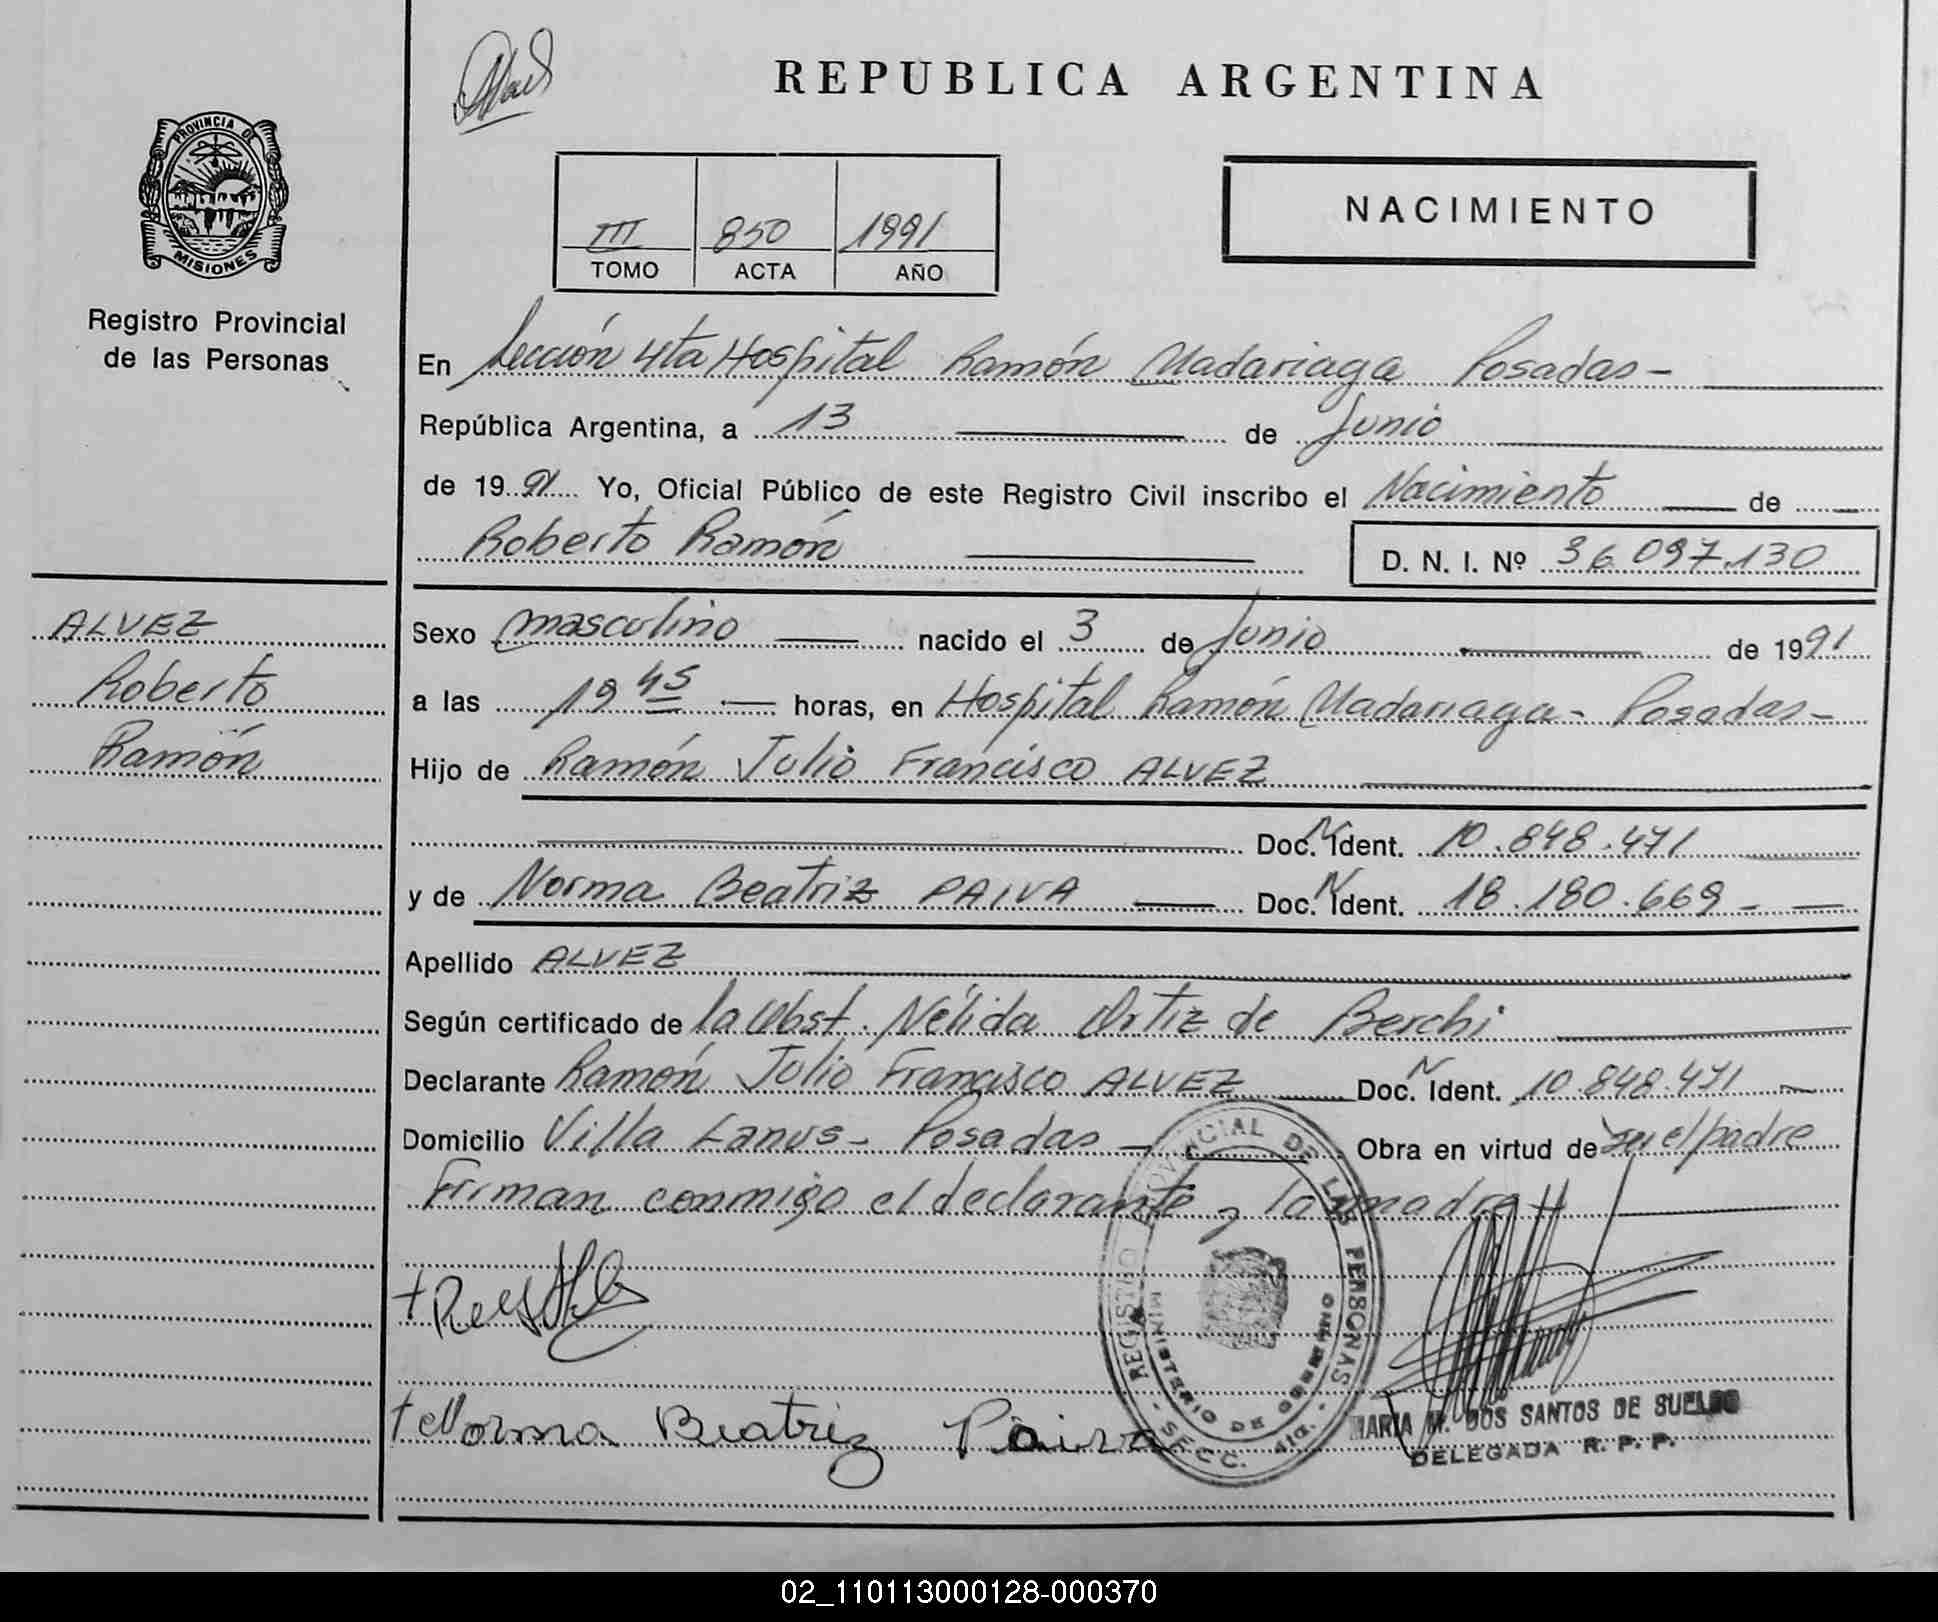 REPUBLICA ARGENTINA
PROVINCIA DE
MISIONES
Registro Provincial
de las Personas
III 850 1991
TOMO ACTA AÑO
NACIMIENTO
En Sección 4ta Hospital Ramón Madariaga Posadas-
República Argentina, a 13 de Junio
de 1991 Yo, Oficial Público de este Registro Civil inscribo el Nacimiento de
Roberto Ramón D. N. I. Nº 36.097.130
ALVEZ
Roberto
Ramón
Sexo masculino nacido el 3 de Junio de 1991
a las 19 45 horas, en Hospital Ramón Madariaga- Posadas-
Hijo de Ramón Julio Francisco ALVEZ
Doc. N Ident. 10.848.471
y de Norma Beatriz PAIVA Doc. N Ident. 18.180.669-
Apellido ALVEZ
Según certificado de la Obst. Nélida Ortiz de Berchi
Declarante Ramón Julio Francisco ALVEZ Doc. N Ident. 10.848.471
Domicilio Villa Lanus- Posadas- Obra en virtud de ser el padre
Firman conmigo el declarante y la madre
REGISTRO PROVINCIAL DE LAS PERSONAS
MINISTERIO DE GOBIERNO
- SECC. 4ta. -
+ Norma Beatriz Paiva
MARIA M. DOS SANTOS DE SUELDO
DELEGADA R. P. P.
02_110113000128-000370